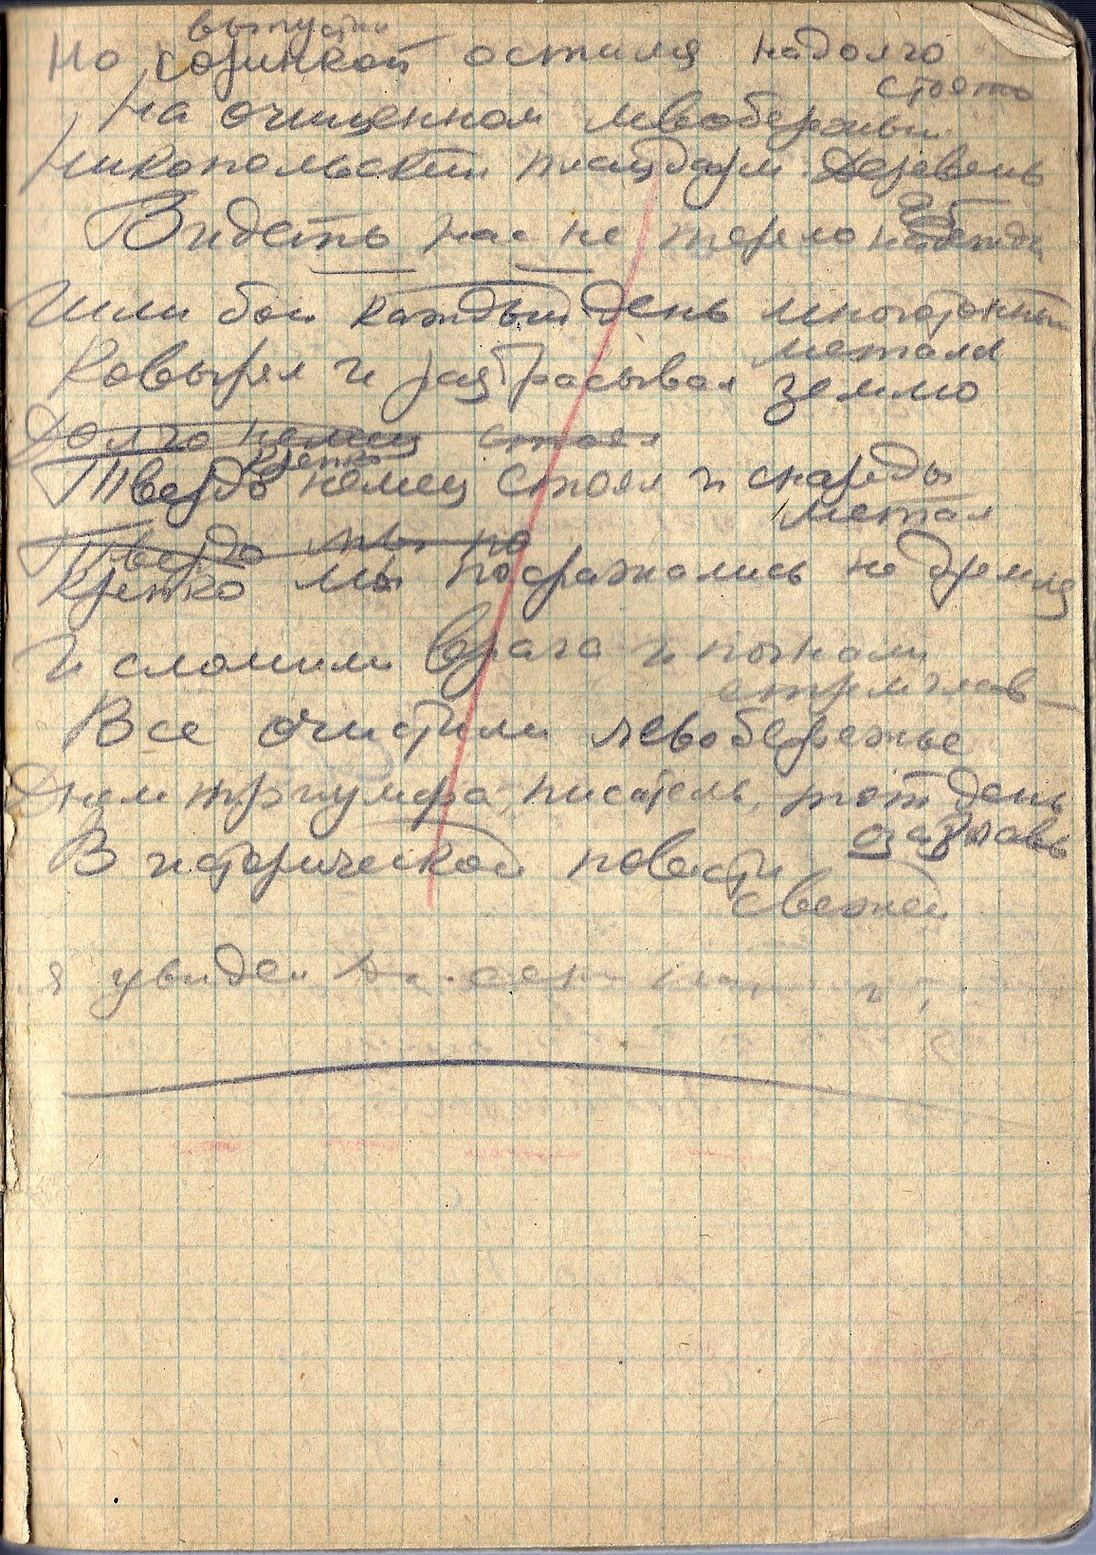 выпустил
Но козинкой остался надолго
стоять
На очищенном левобережьи
Никопольский плацдарм. Деревень
Видеть нас не теряло надежды
Шли бои каждый день многотонный
металл
Ковырял и разбрасывал землю
Долго немец стоял
крепко
Твердо немец стоял и снаряды
метал
Твердо мы но
Крепко мы посражались не дремля
И сломили врага и погнали
стремглав
Все очистили левобережье
Днем триумфа, писатель, тот день
озаглавь
В исторической повести
свежей
я увидел